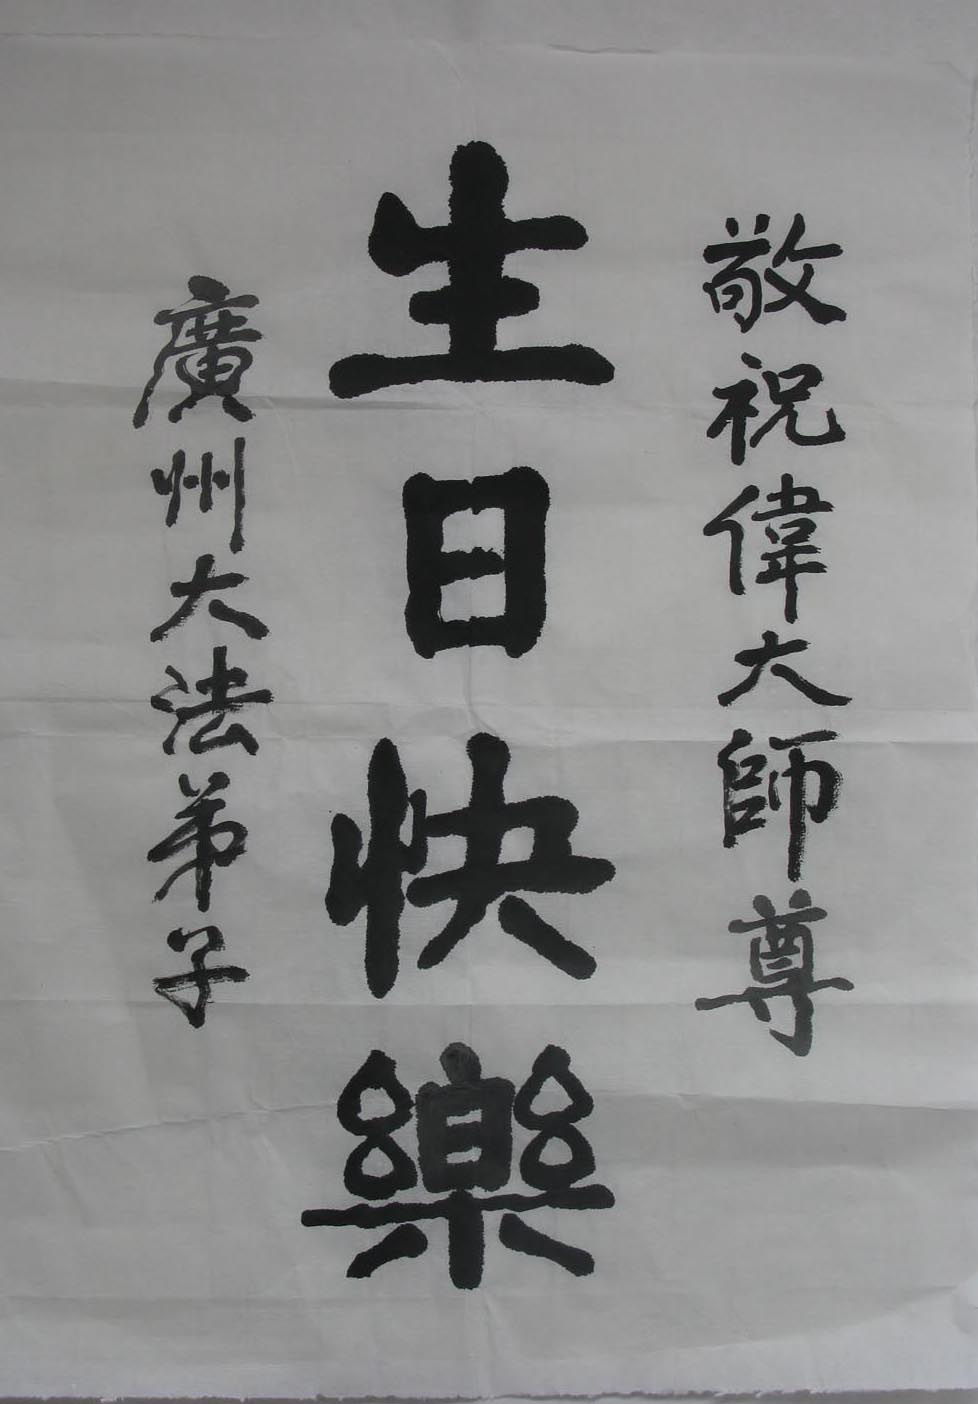 敬祝偉大師尊
生日快樂
廣州大法弟子